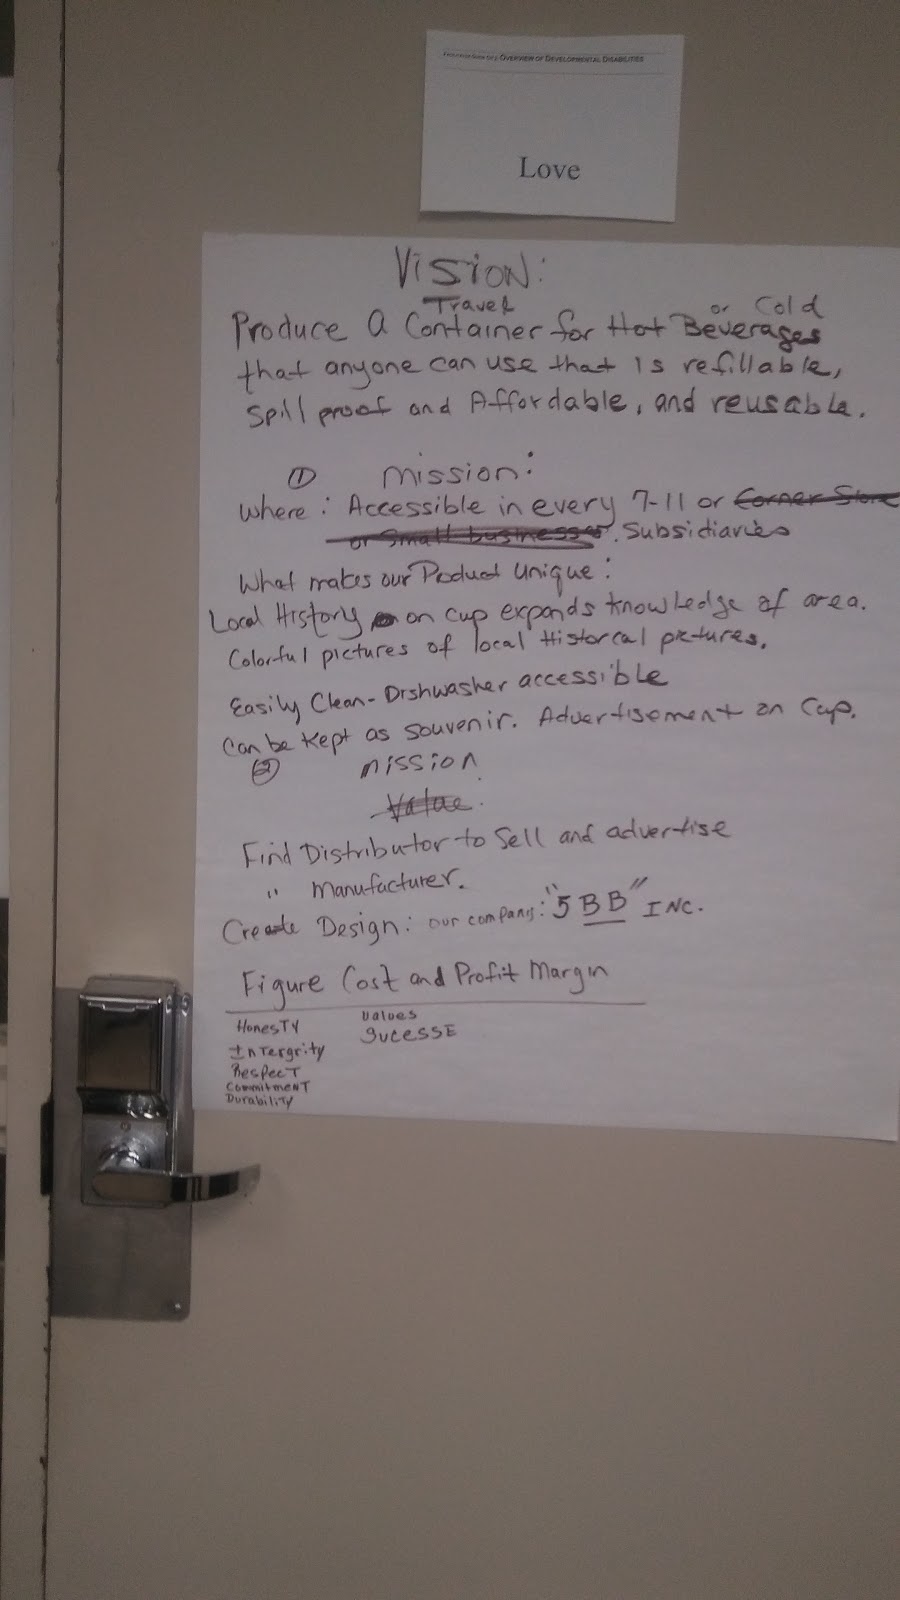 OVERVIEW OF DEVELOPMENTAL DISABILITIES
Love
Vision:
Travel or Cold
Produce A Container for Hot Beverages
that anyone can use that is refillable,
Spill proof and Affordable, and reusable.
① mission:
Where: Accessible in every 7-11 or Corner Store
or Small business. Subsidiaries
What makes our Product Unique:
Local History on cup expands knowledge of area.
Colorful pictures of local Historcal pictures.
Easily Clean-Dishwasher accessible
Can be Kept as souvenir. Advertisement on Cup.
② mission
Value.
Find Distributor to Sell and advertise
" manufacturer.
Create Design: our company: "5BB" INC.
Figure Cost and Profit Margin
Honesty Values
Intergrity SucessE
Respect
Commitment
Durability